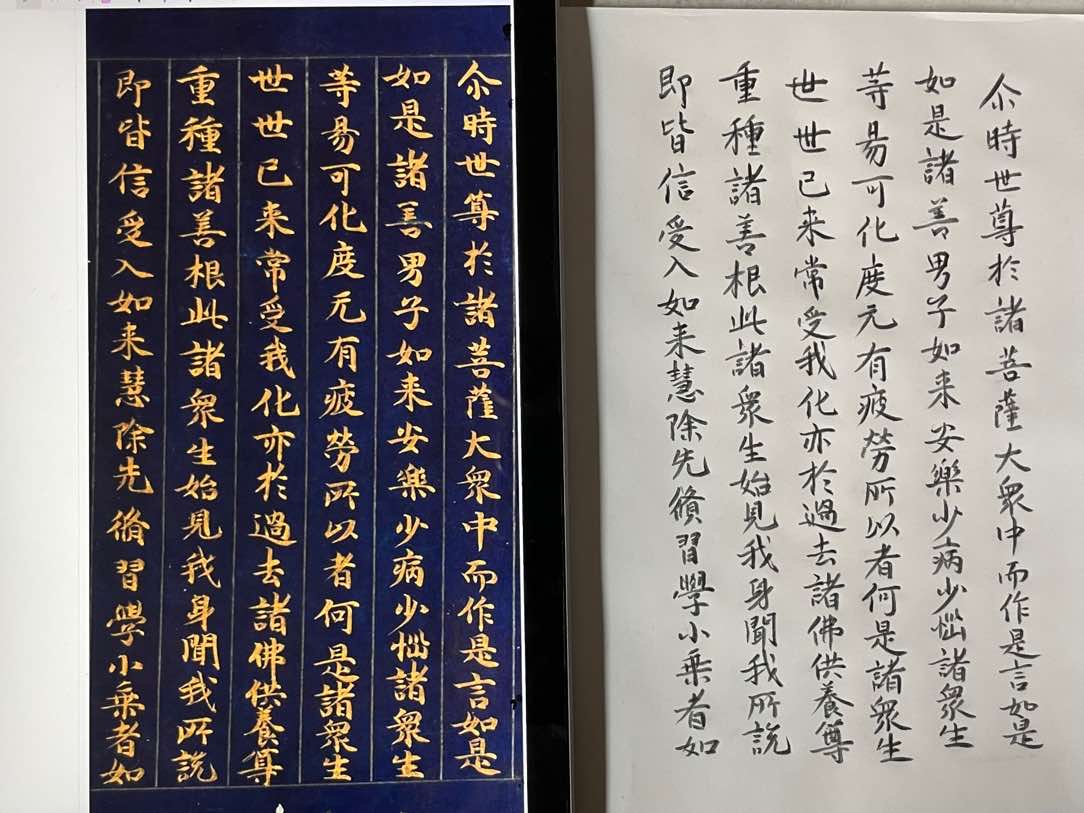 尒時世尊於諸菩薩大衆中而作是言如是
如是諸善男子如来安樂少病少惱諸衆生
等易可化度无有疲勞所以者何是諸衆生
世世已来常受我化亦於過去諸佛供養尊
重種諸善根此諸衆生始見我身聞我所說
即皆信受入如来慧除先脩習學小乗者如
尒時世尊於諸菩薩大衆中而作是言如是
如是諸善男子如来安樂少病少惱諸衆生
等易可化度元有疲勞所以者何是諸衆生
世世已来常受我化亦於過去諸佛供養尊
重種諸善根此諸衆生始見我身聞我所說
即皆信受入如来慧除先脩習學小乗者如